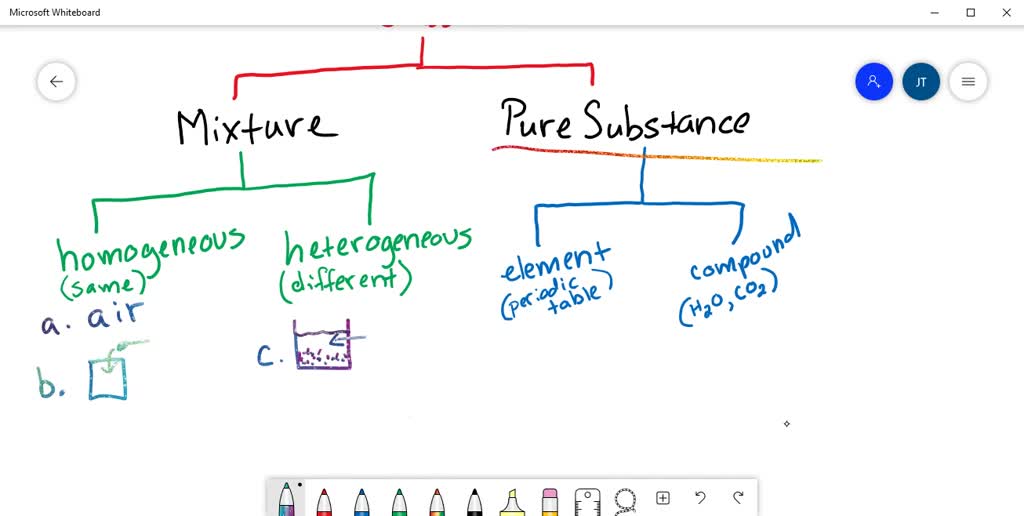 Microsoft Whiteboard
JT
Mixture
Pure Substance
homogeneous
(same)
heterogeneous
(different)
element
(periodic
table)
compound
(H₂O, CO₂)
a. air
b.
c.